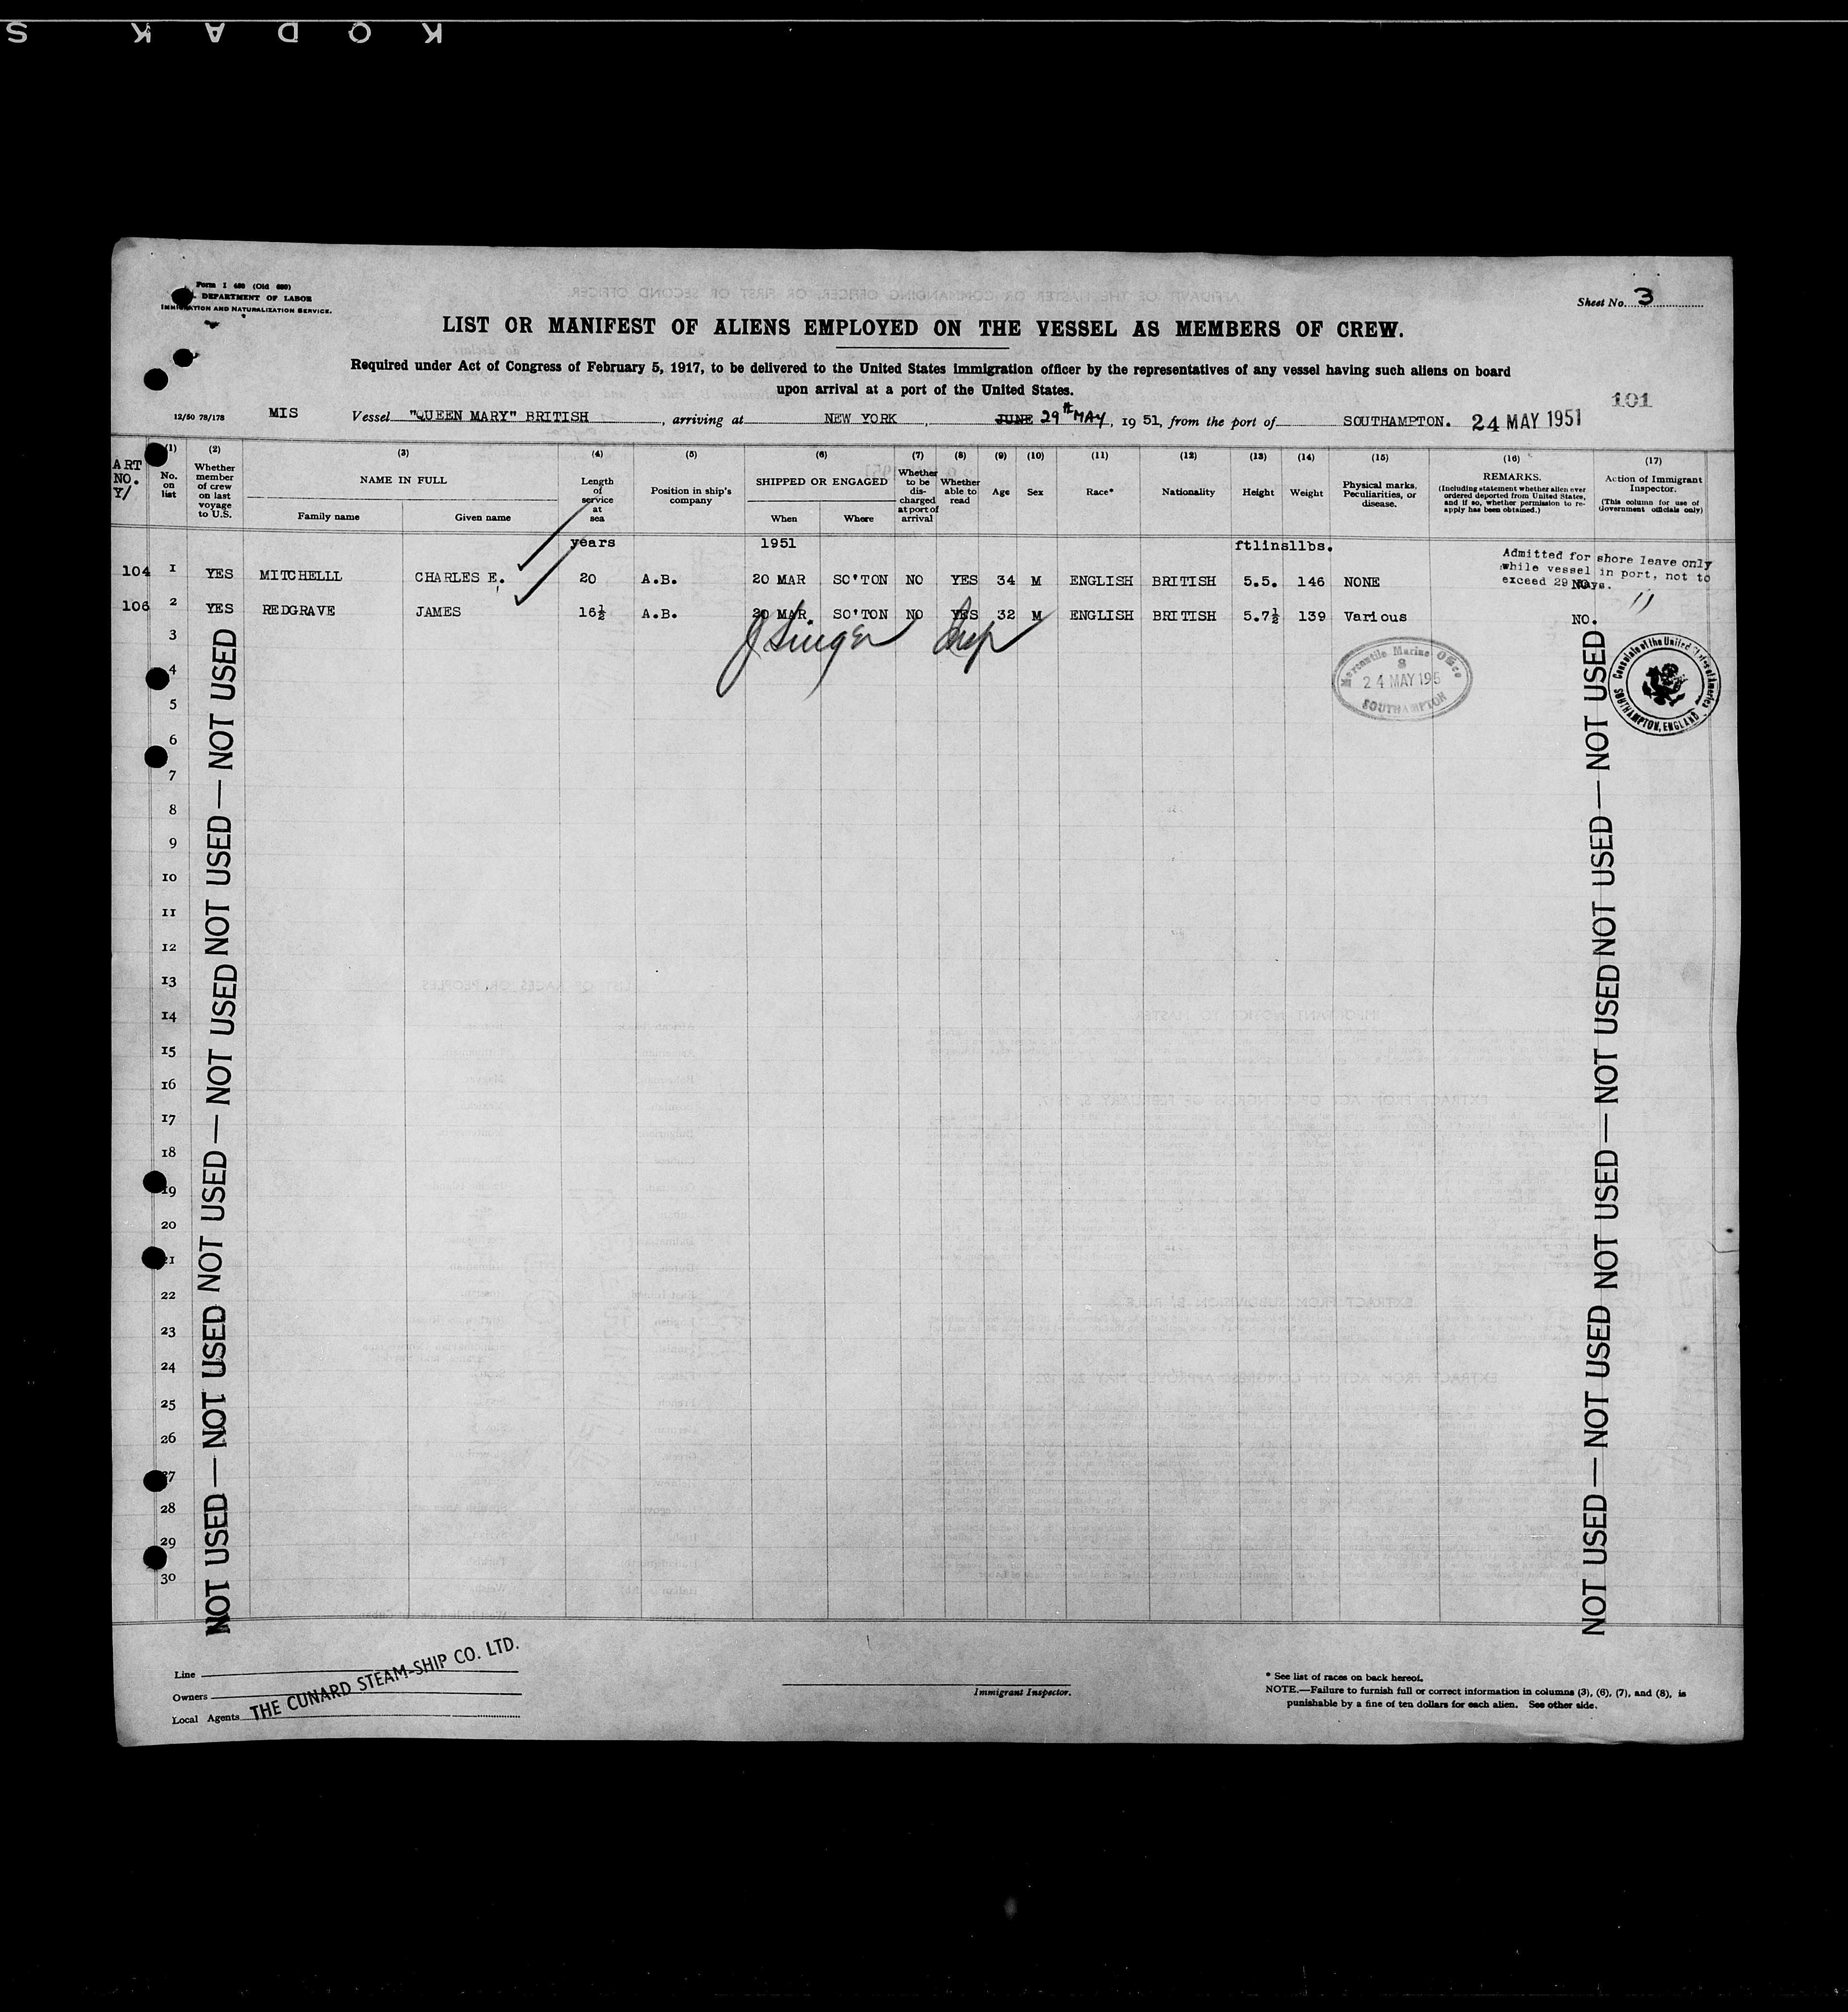 KODAK S
Form I 480 (Old 680)
DEPARTMENT OF LABOR
IMMIGRATION AND NATURALIZATION SERVICE.
Sheet No. 3
LIST OR MANIFEST OF ALIENS EMPLOYED ON THE VESSEL AS MEMBERS OF CREW.
Required under Act of Congress of February 5, 1917, to be delivered to the United States immigration officer by the representatives of any vessel having such aliens on board
upon arrival at a port of the United States.
101
12/50 78/178 MIS Vessel "QUEEN MARY" BRITISH, arriving at NEW YORK, JUNE 29th MAY, 1951, from the port of SOUTHAMPTON. 24 MAY 1951
ART NO. Y/
(1) No. on list
(2) Whether member of crew on last voyage to U.S.
(3) NAME IN FULL
Family name Given name
(4) Length of service at sea
(5) Position in ship's company
(6) SHIPPED OR ENGAGED
When Where
(7) Whether to be discharged at port of arrival
(8) Whether able to read
(9) Age
(10) Sex
(11) Race*
(12) Nationality
(13) Height
(14) Weight
(15) Physical marks, Peculiarities, or disease.
(16) REMARKS.
(Including statement whether alien ever ordered deported from United States, and if so, whether permission to re-apply has been obtained.)
(17) Action of Immigrant Inspector.
(This column for use of Government officials only)
years 1951 ftlinsllbs.
Admitted for shore leave only
while vessel in port, not to
exceed 29 days.
104 1 YES MITCHELLL CHARLES E. 20 A.B. 20 MAR SO'TON NO YES 34 M ENGLISH BRITISH 5.5. 146 NONE NO.
106 2 YES REDGRAVE JAMES 16½ A.B. 20 MAR SO'TON NO YES 32 M ENGLISH BRITISH 5.7½ 139 Various NO.
J Singer Insp
Mercantile Marine Office
8
24 MAY 195
SOUTHAMPTON
Consulate of the United States of America
SOUTHAMPTON, ENGLAND
3
4
5
6
7
8
9
10
11
12
13
14
15
16
17
18
19
20
21
22
23
24
25
26
27
28
29
30
NOT USED — NOT USED NOT USED — NOT USED — NOT USED NOT USED — NOT USED
NOT USED — NOT USED NOT USED — NOT USED — NOT USED NOT USED — NOT USED
Line
Owners
Local Agents
THE CUNARD STEAM-SHIP CO. LTD.
Immigrant Inspector.
* See list of races on back hereof.
NOTE.—Failure to furnish full or correct information in columns (3), (6), (7), and (8), is
punishable by a fine of ten dollars for each alien. See other side.